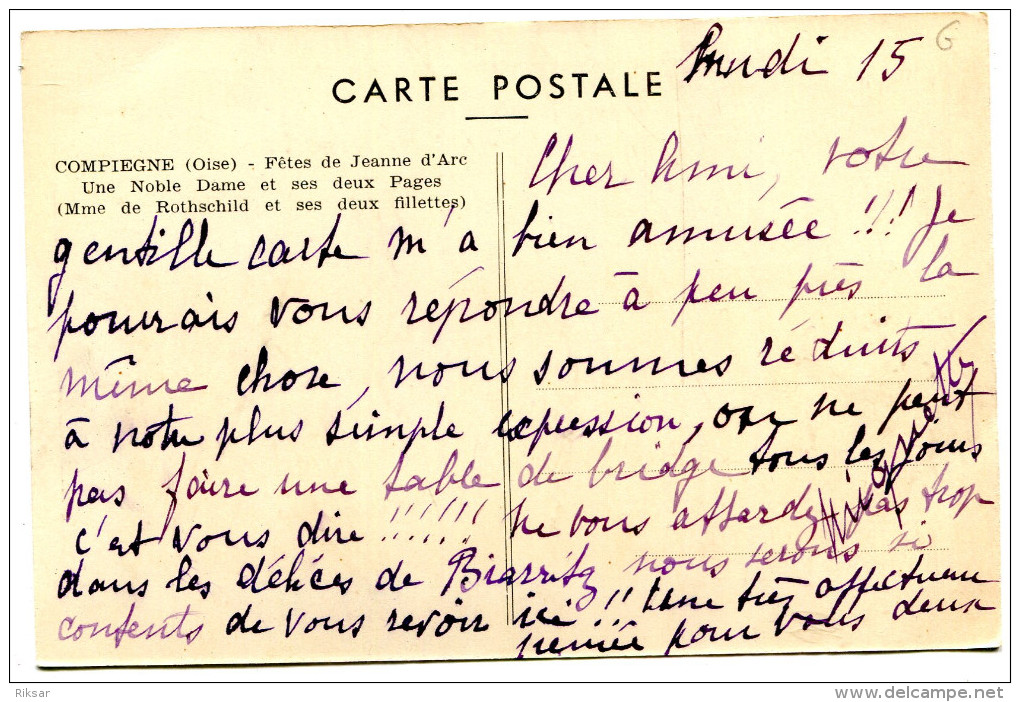 6
Lundi 15
CARTE POSTALE
COMPIEGNE (Oise) - Fêtes de Jeanne d'Arc
Une Noble Dame et ses deux Pages
(Mme de Rothschild et ses deux fillettes)
Cher Ami, votre
gentille carte m'a bien amusée !!! Je
pourrais vous répondre à peu près la
même chose, nous sommes réduits
à notre plus simple expression, on ne peut
pas faire une table de bridge tous les jours
c'est vous dire !!!!!! ne vous attardez pas trop
dans les délices de Biarritz nous serons si
contents de vous revoir ici !! Une très affectueuse
pensée pour vous deux
Riksar
www.delcampe.net